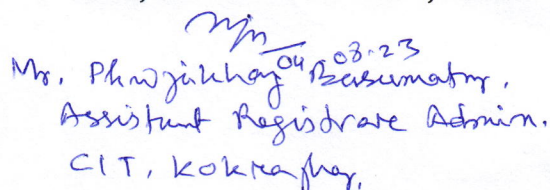 04.08.23
Mr. Phwjikhang Basumatry.
Assistant Registrare Admin.
CIT, Kokrajhar,